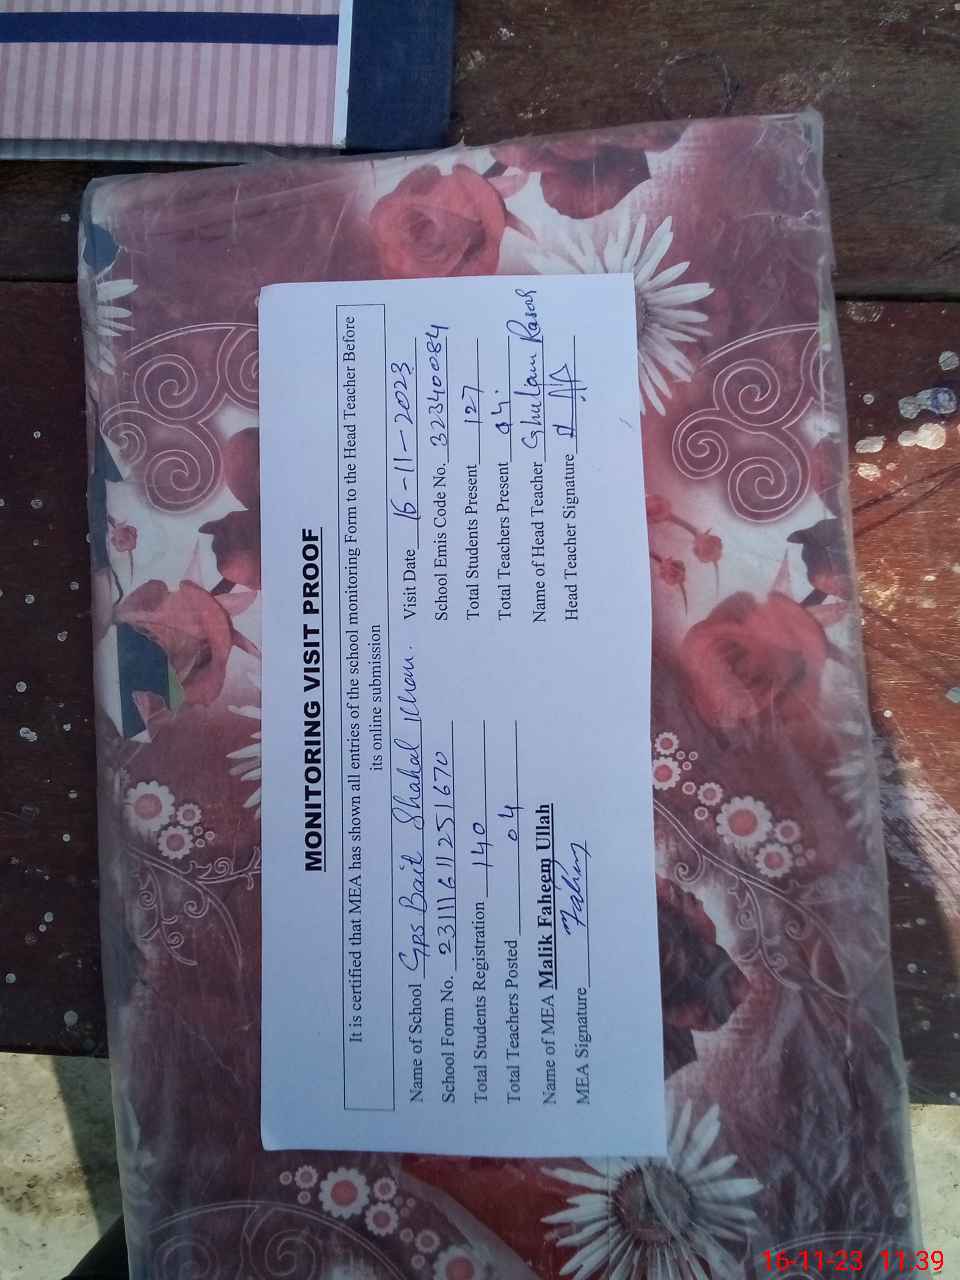 MONITORING VISIT PROOF
It is certified that MEA has shown all entries of the school monitoring Form to the Head Teacher Before
its online submission
Name of School GPS Bait Shahal Khan. Visit Date 16-11-2023
School Form No. 23111611251670 School Emis Code No. 32340084
Total Students Registration 140 Total Students Present 127
Total Teachers Posted 04 Total Teachers Present 04
Name of MEA Malik Faheem Ullah Name of Head Teacher Ghulam Rasool
MEA Signature Fahim Head Teacher Signature
16-11-23 11.39